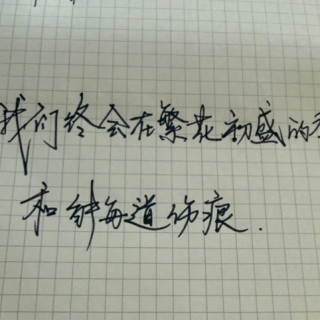 我们终会在繁花初盛的
和解每道伤痕.